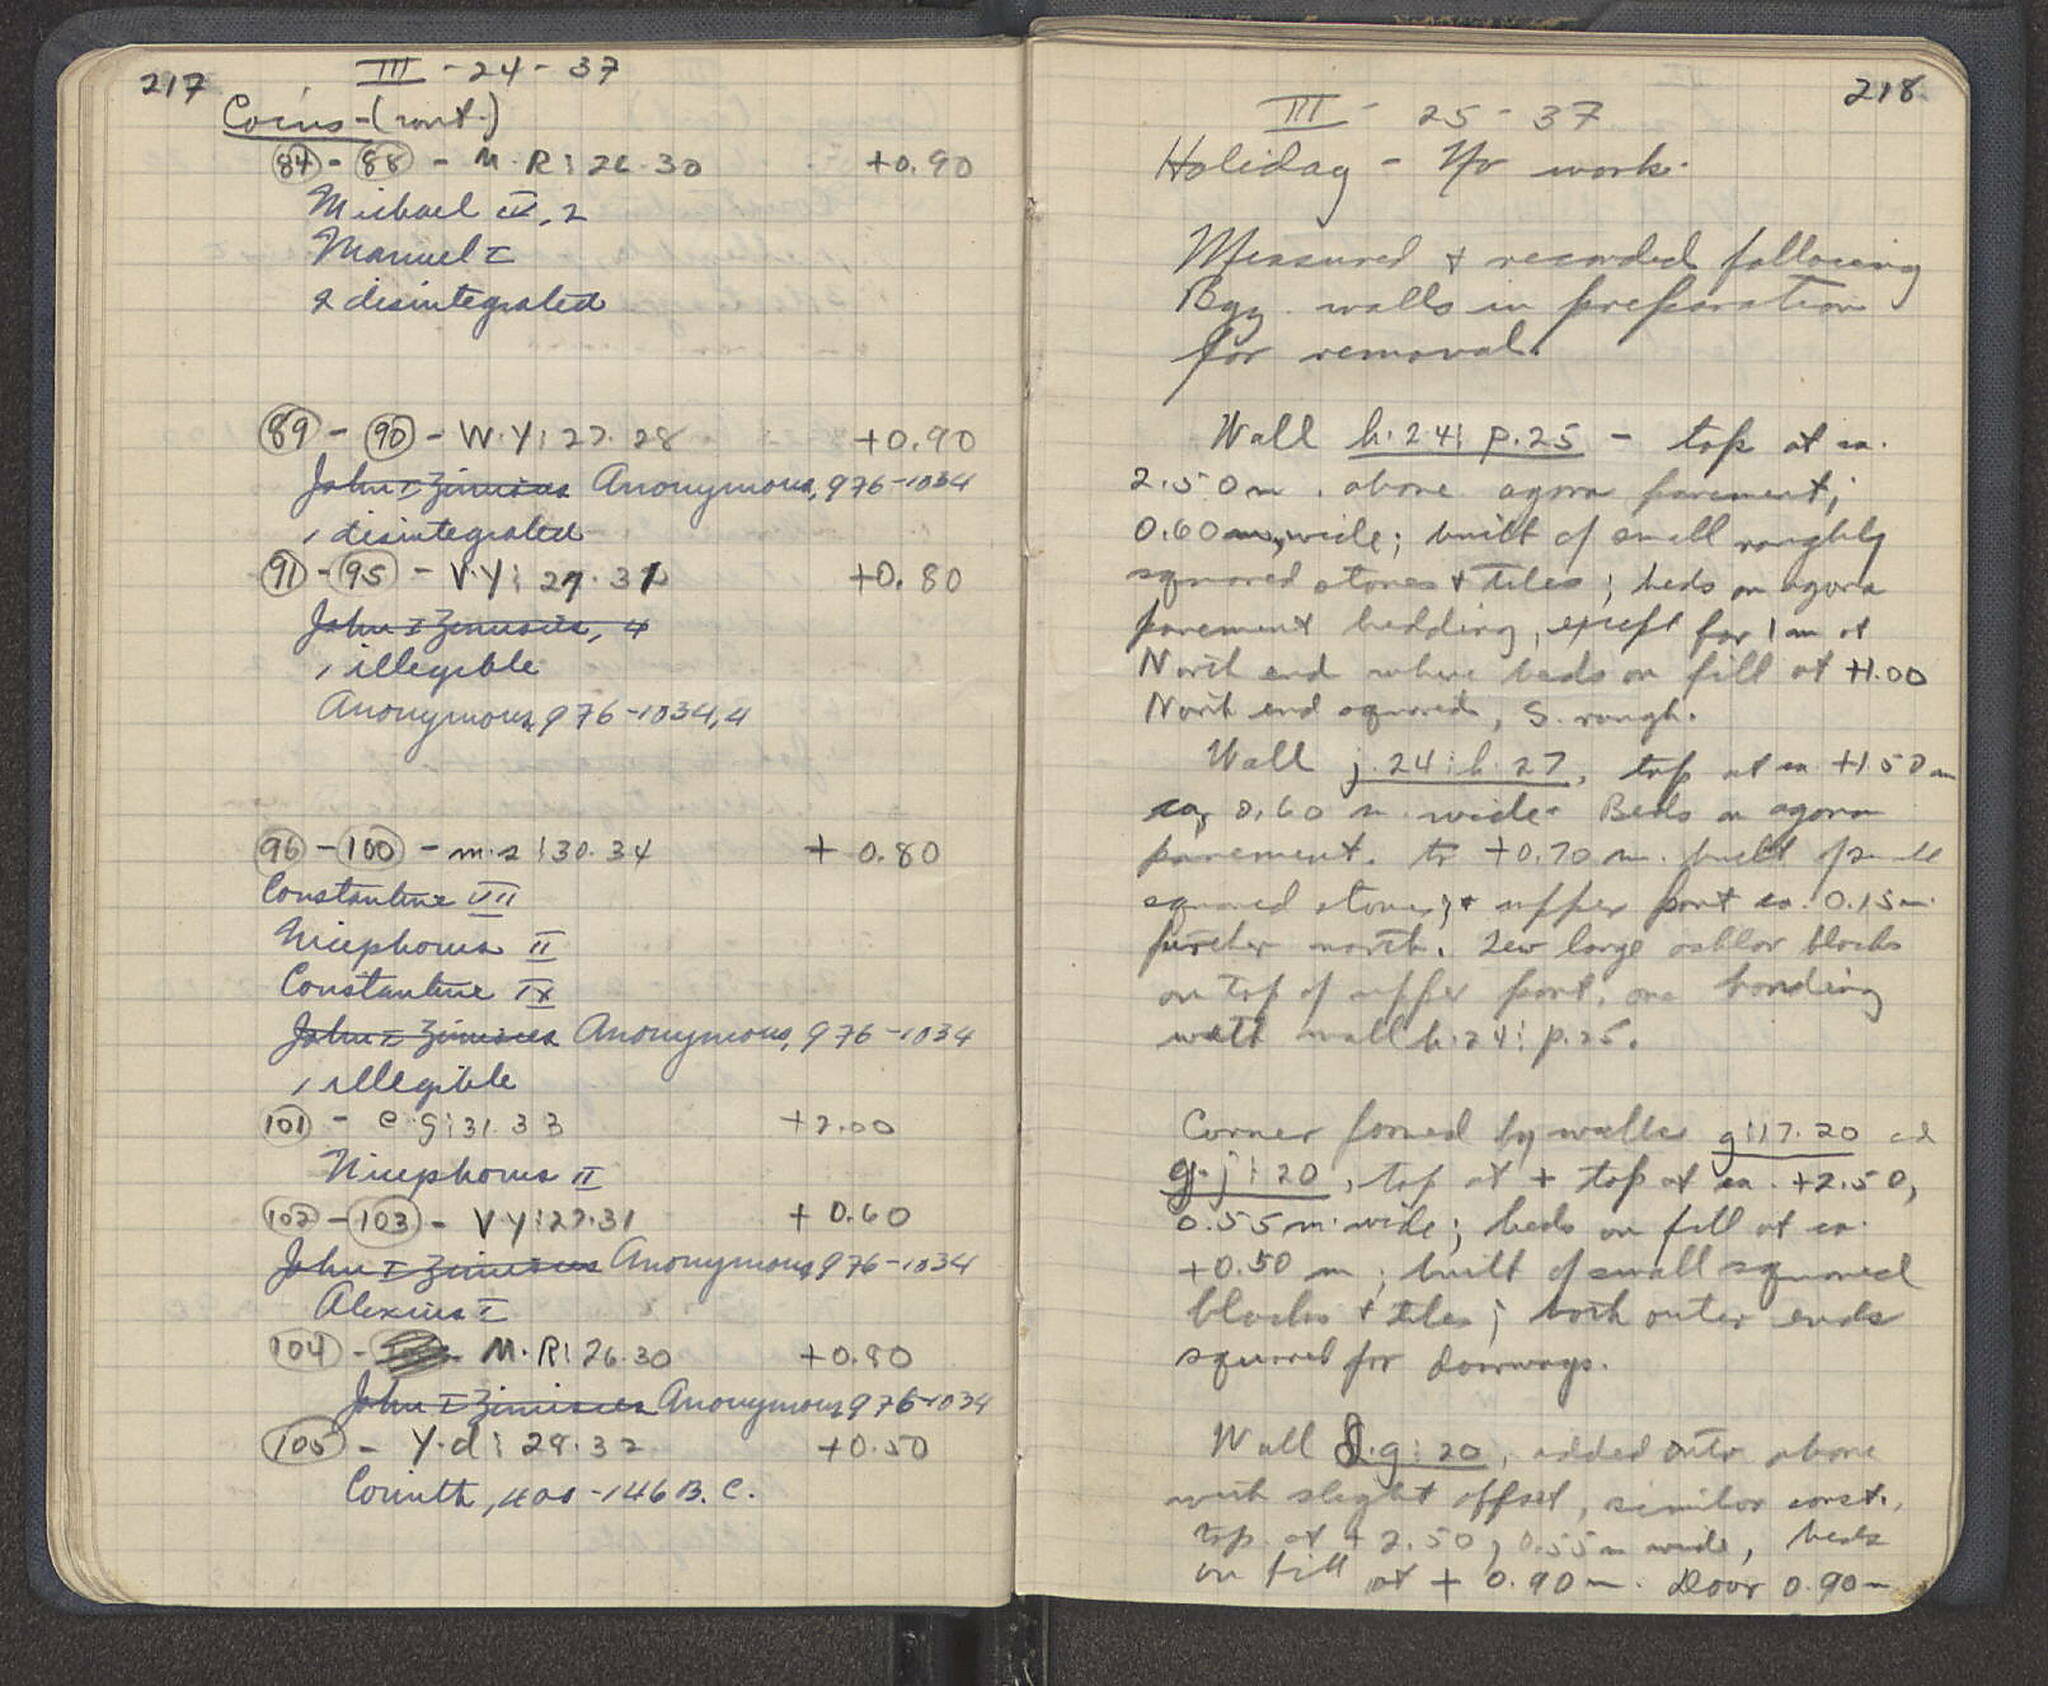 217
III - 24 - 37
Coins - (cont.)
84 - 88 - M.R:26.30 +0.90
Michael IV, 2
Manuel I
2 disintegrated
89 - 90 - W.Y:27.28 +0.90
John I Zimisces Anonymous, 976-1034
1 disintegrated
91 - 95 - V.Y:27.31 +0.80
John I Zimisces, 4
1 illegible
Anonymous, 976-1034, 4
96 - 100 - m.s:30.34 + 0.80
Constantine VII
Nicephorus II
Constantine IX
John I Zimisces Anonymous, 976-1034
1 illegible
101 - e.g:31.33 +2.00
Nicephorus II
102 - 103 - V.Y:27.31 + 0.60
John I Zimisces Anonymous, 976-1034
Alexius I
104 - M.R:26.30 +0.80
John I Zimisces Anonymous, 976-1034
105 - Y.d:28.32 +0.50
Corinth, 400-146 B.C.
218
III - 25 - 37
Holiday - No work.
Measured + recorded following
Byz. walls in preparation
for removal.
Wall h.24:p.25 - top at ca.
2.50 m. above agora pavement;
0.60 m. wide; built of small roughly
squared stones + tiles; beds on agora
pavement bedding, except for 1 m at
North end where beds on fill at +1.00
North end squared, S. rough.
Wall j.24:h.27, top at ca +1.50 m
ca, 0.60 m. wide. Beds on agora
pavement. to +0.70 m. built of small
squared stones; + upper part ca. 0.15 m.
further north. Few large ashlar blocks
on top of upper part, one bonding
with wall h.24:p.25.
Corner formed by walls g:17.20 and
g.j:20, top at + top at ca. +2.50,
0.55 m. wide; beds on fill at ca.
+0.50 m; built of small squared
blocks + tiles; both outer ends
squared for doorways.
Wall d.g:20, added onto above
with slight offset, similar const.,
top at +2.50, 0.55 m wide, beds
on fill at + 0.90 m. Door 0.90 m